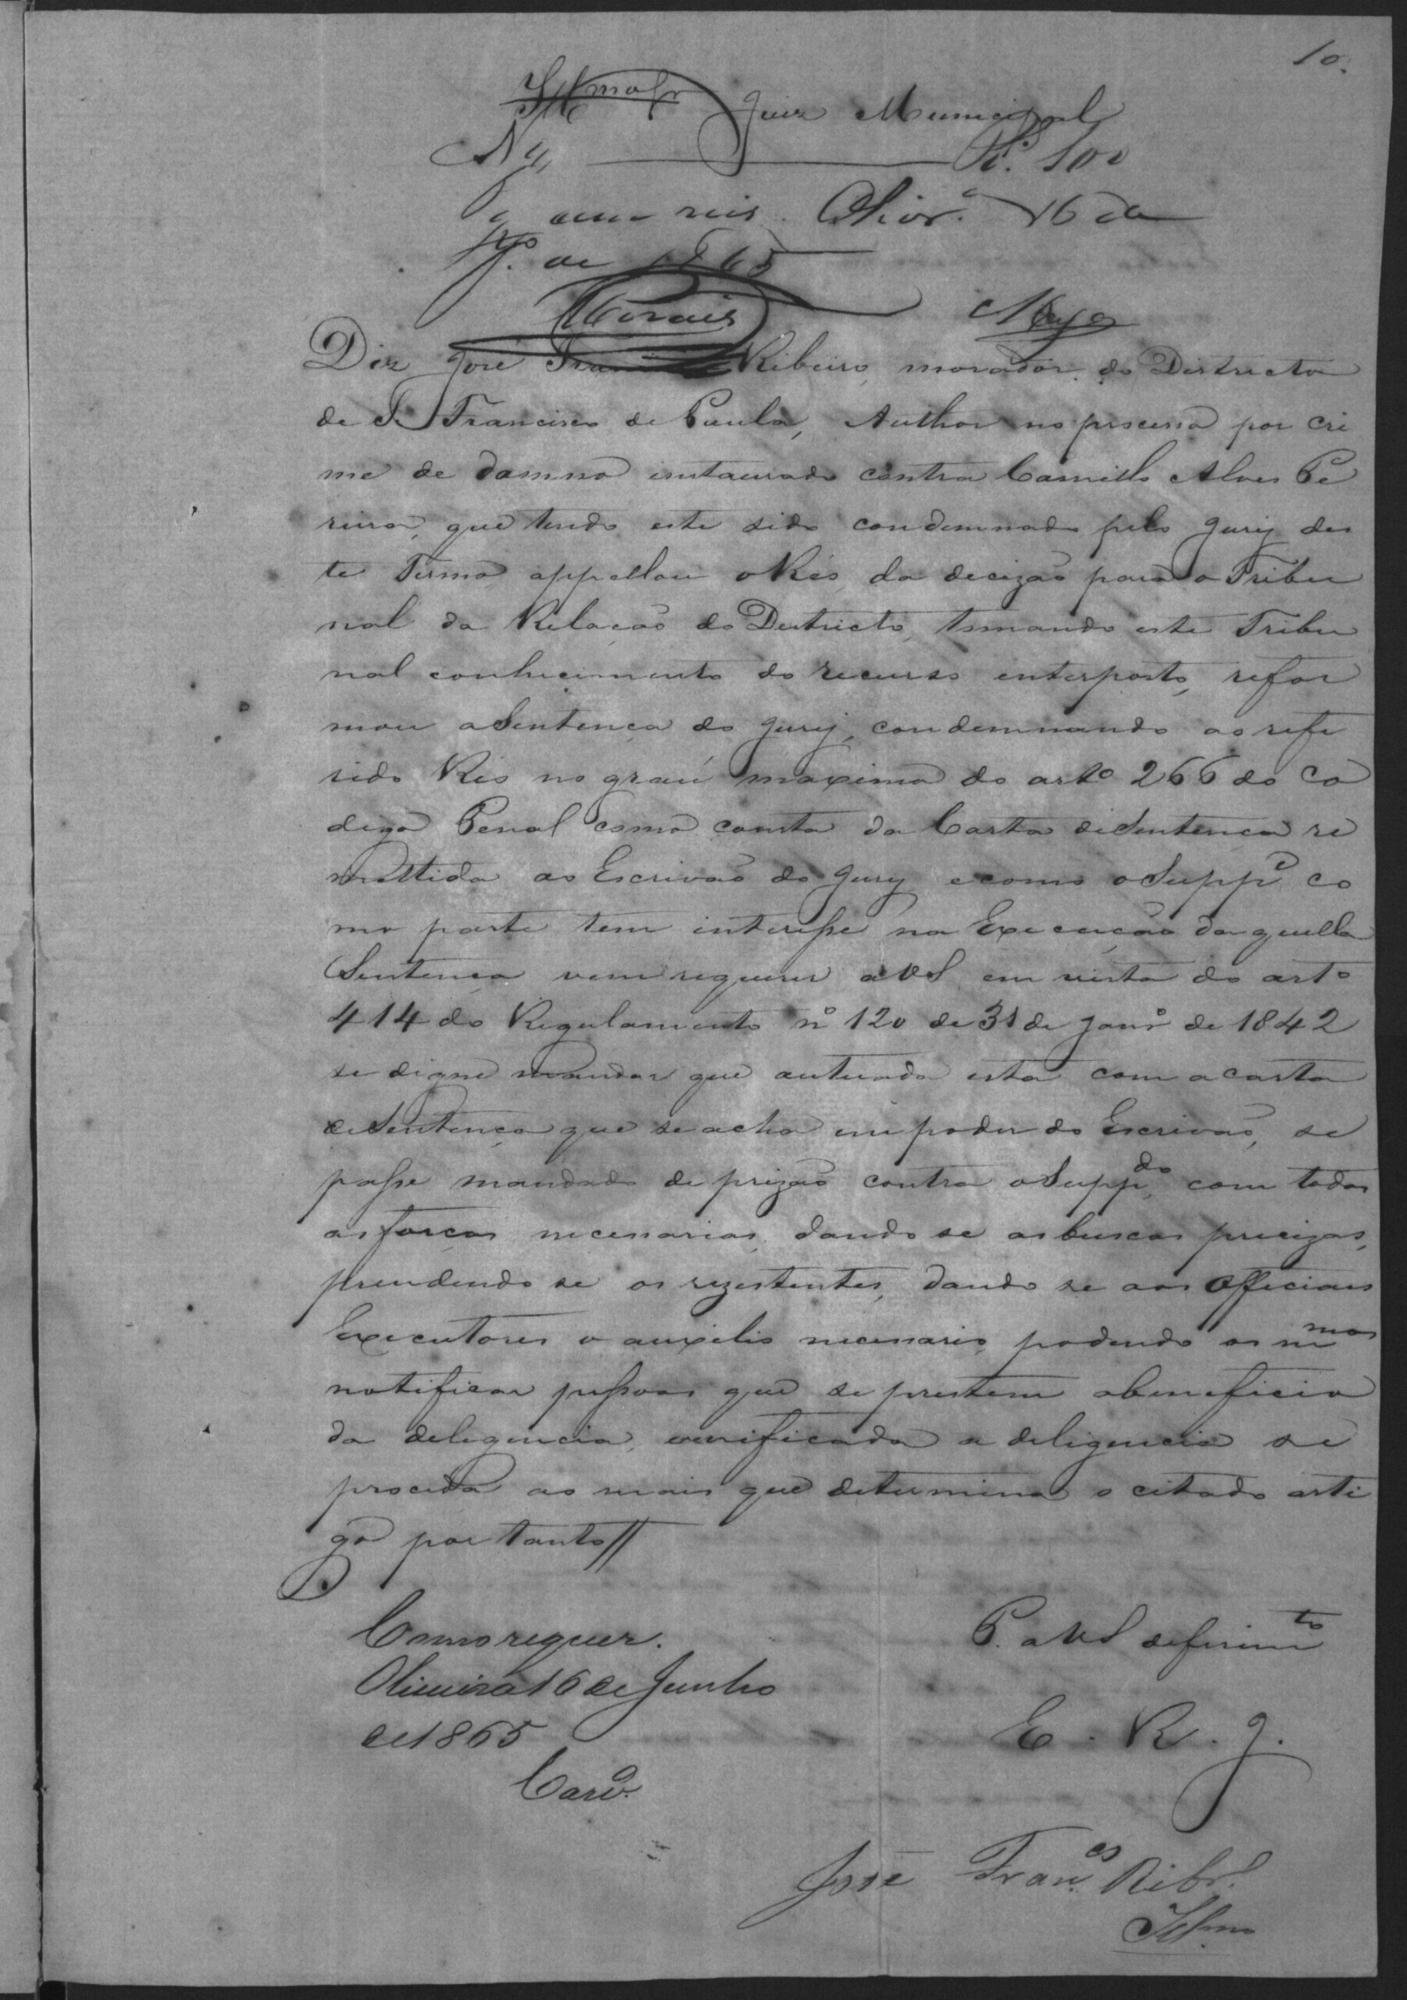 10.
Illmo Sr Juiz Municipal
N 4 Rs. 100
Pg. cem reis. Olivra. 16 de
de 1865
Moraes Maya
Diz José Francisco Ribeiro, morador do Destricto
de S. Francisco de Paula, Author no processo por cri
me de damno instaurado contra Camillo Alves Pe
reira, que tendo este sido condemnado pelo Jury des
te Termo appellou o Réo, da decizão para o Tribu
nal da Relação do Destricto, tomando este Tribu
nal conhecimento do recurso interposto, refor
mou a Sentença do Jury, condemnando ao refe
rido Réo no gráu maximo do arto 266 do Co
digo Penal como consta da Carta de Sentença re
mettida ao Escrivão do Jury e como o Suppe co
mo parte tem interesse na Execução daquella
Sentença vem requerer a VS em vista do arto
414 do Regulamento no 120 de 31 de Janro de 1842
se digne mandar que autuada esta com a carta
de Sentença que se acha em poder do Escrivão, se
passe mandado de prizão contra o Suppdo, com todas
as forças necessarias, dando se as buscas precizas,
prendendo se os rezestentes, dando se aos Officiaes
Executores o auxilio necessario, podendo os mmos
notificar pessoas que se prestem a beneficio
da deligencia, e verificada a deligencia se
proceda ao mais que determina o citado arti
go por tanto //
P. a VS deferimto
E. R. J.
Como requer.
Oliveira 16 de Junho
de 1865
Caro.
José Franco Ribro